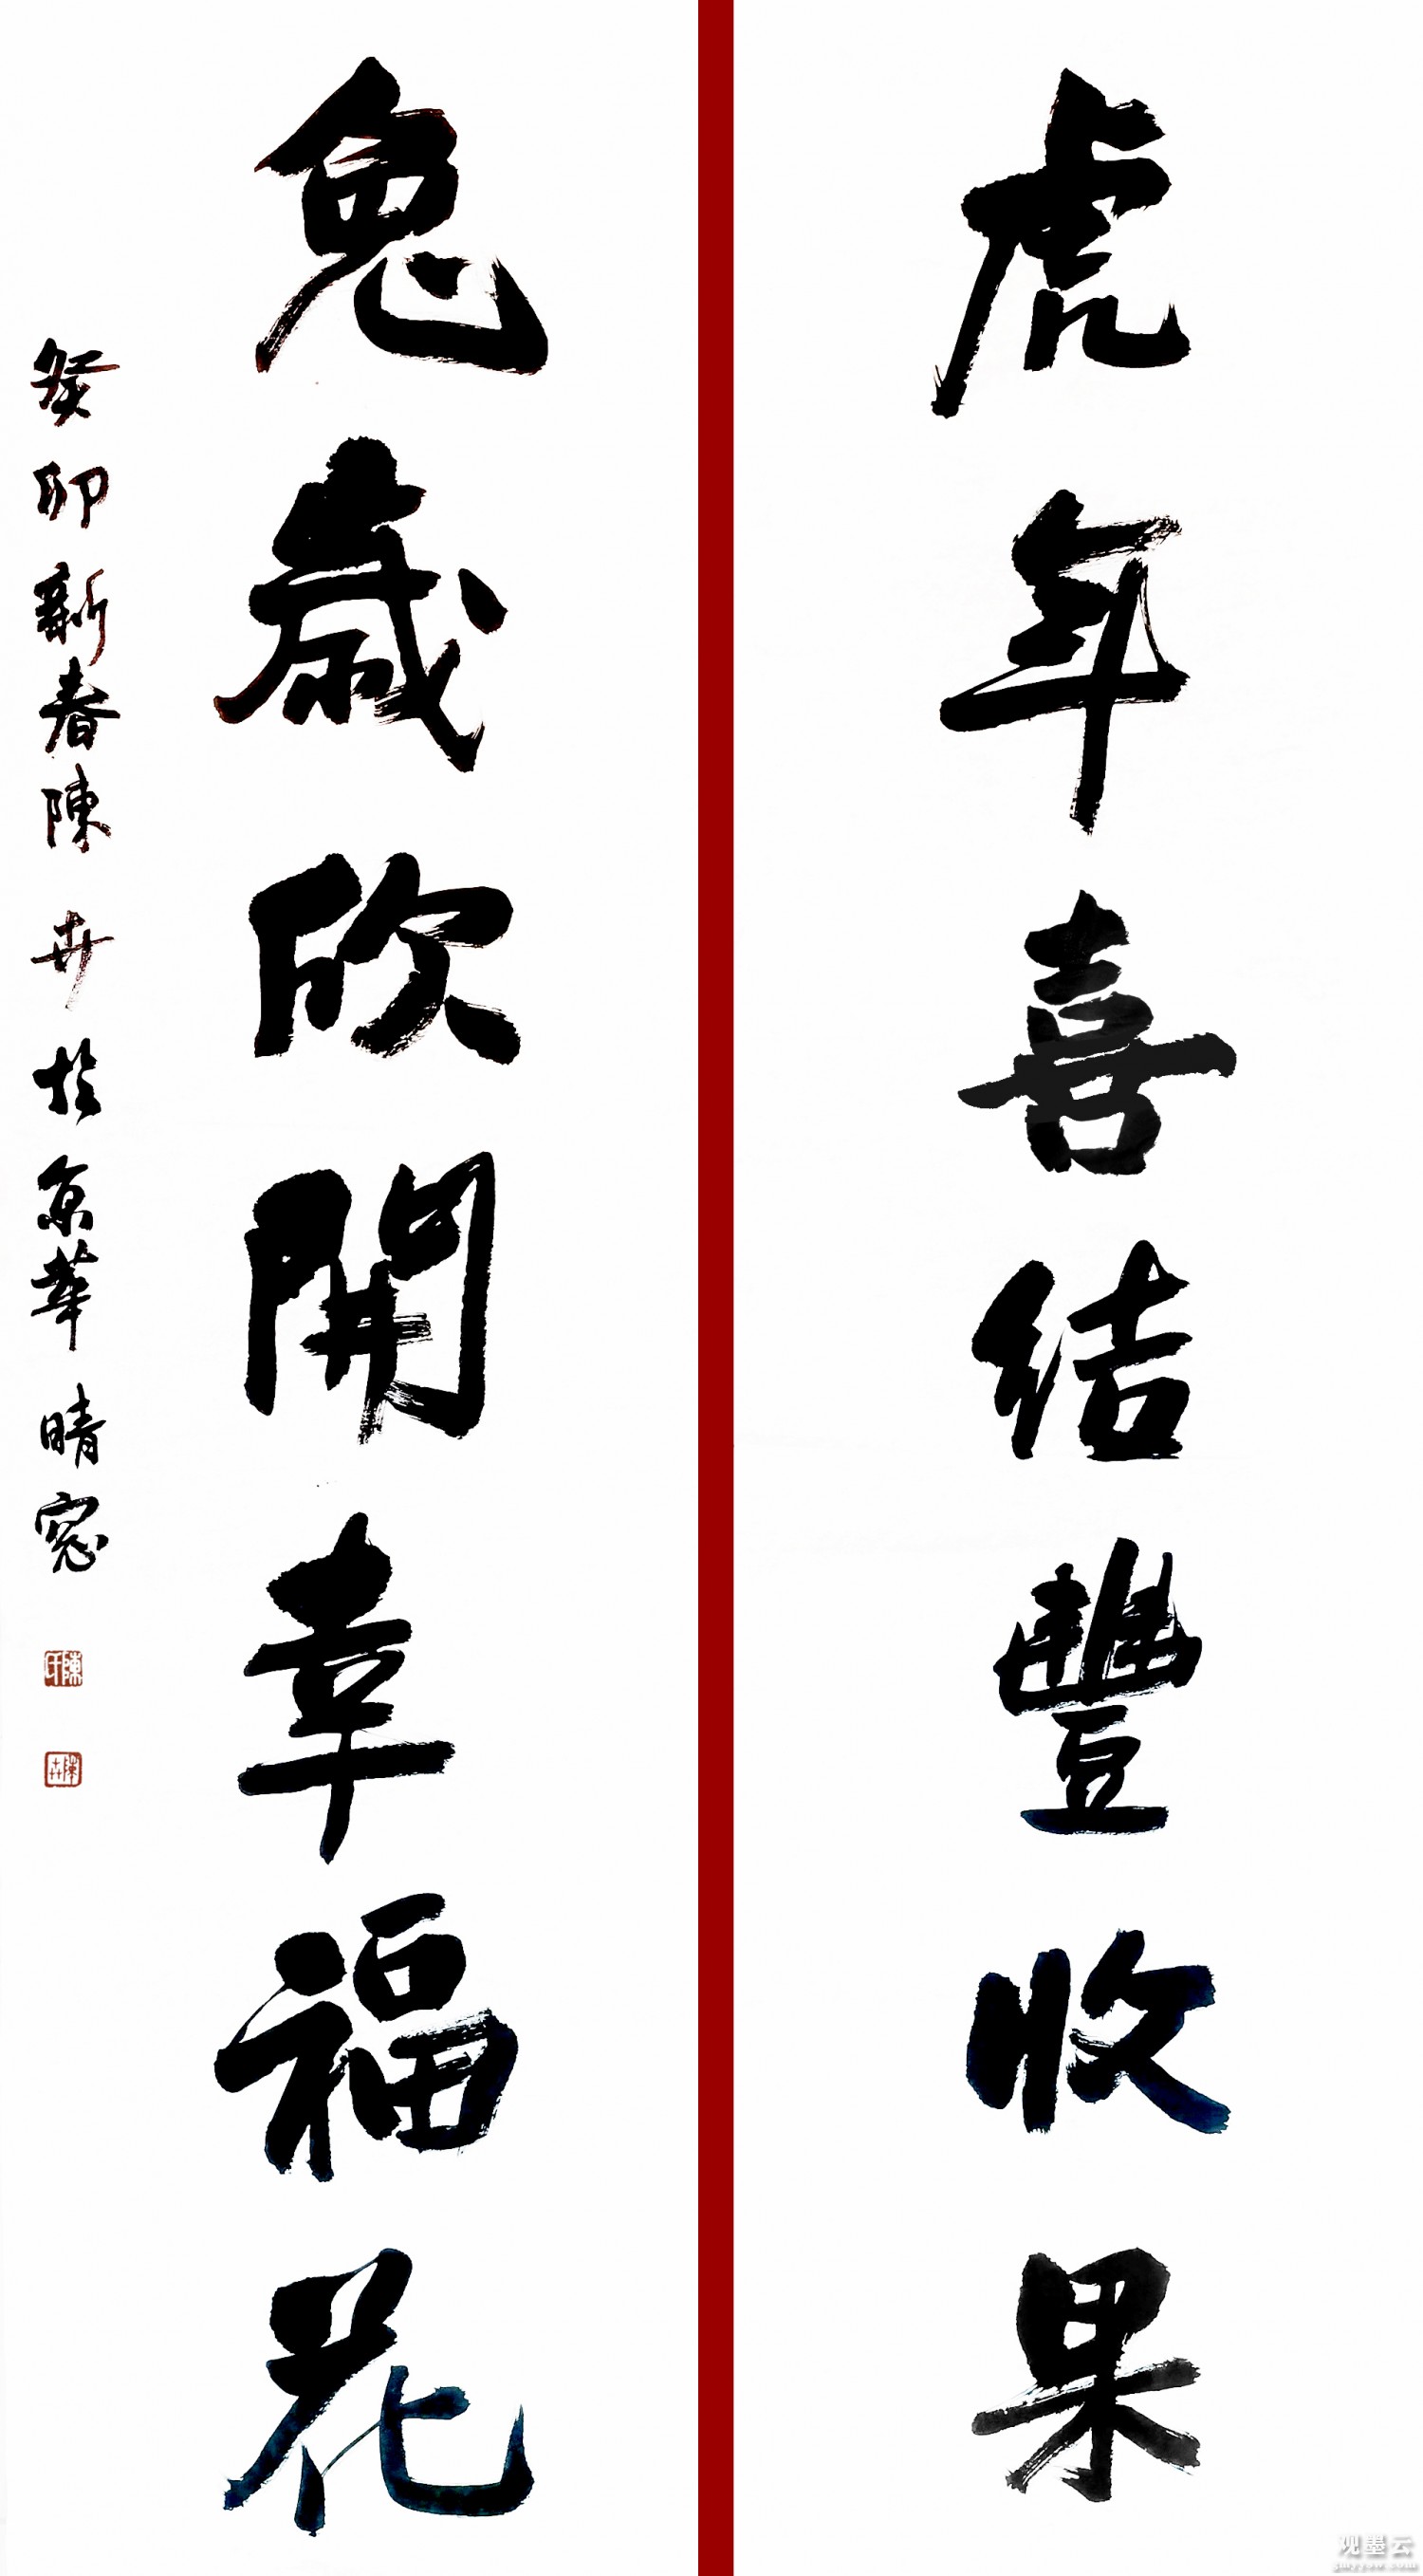 虎年喜结豐收果
兔歲欣開幸福花
癸卯新春陳卉於京華晴窓
陳
陳卉
观墨云